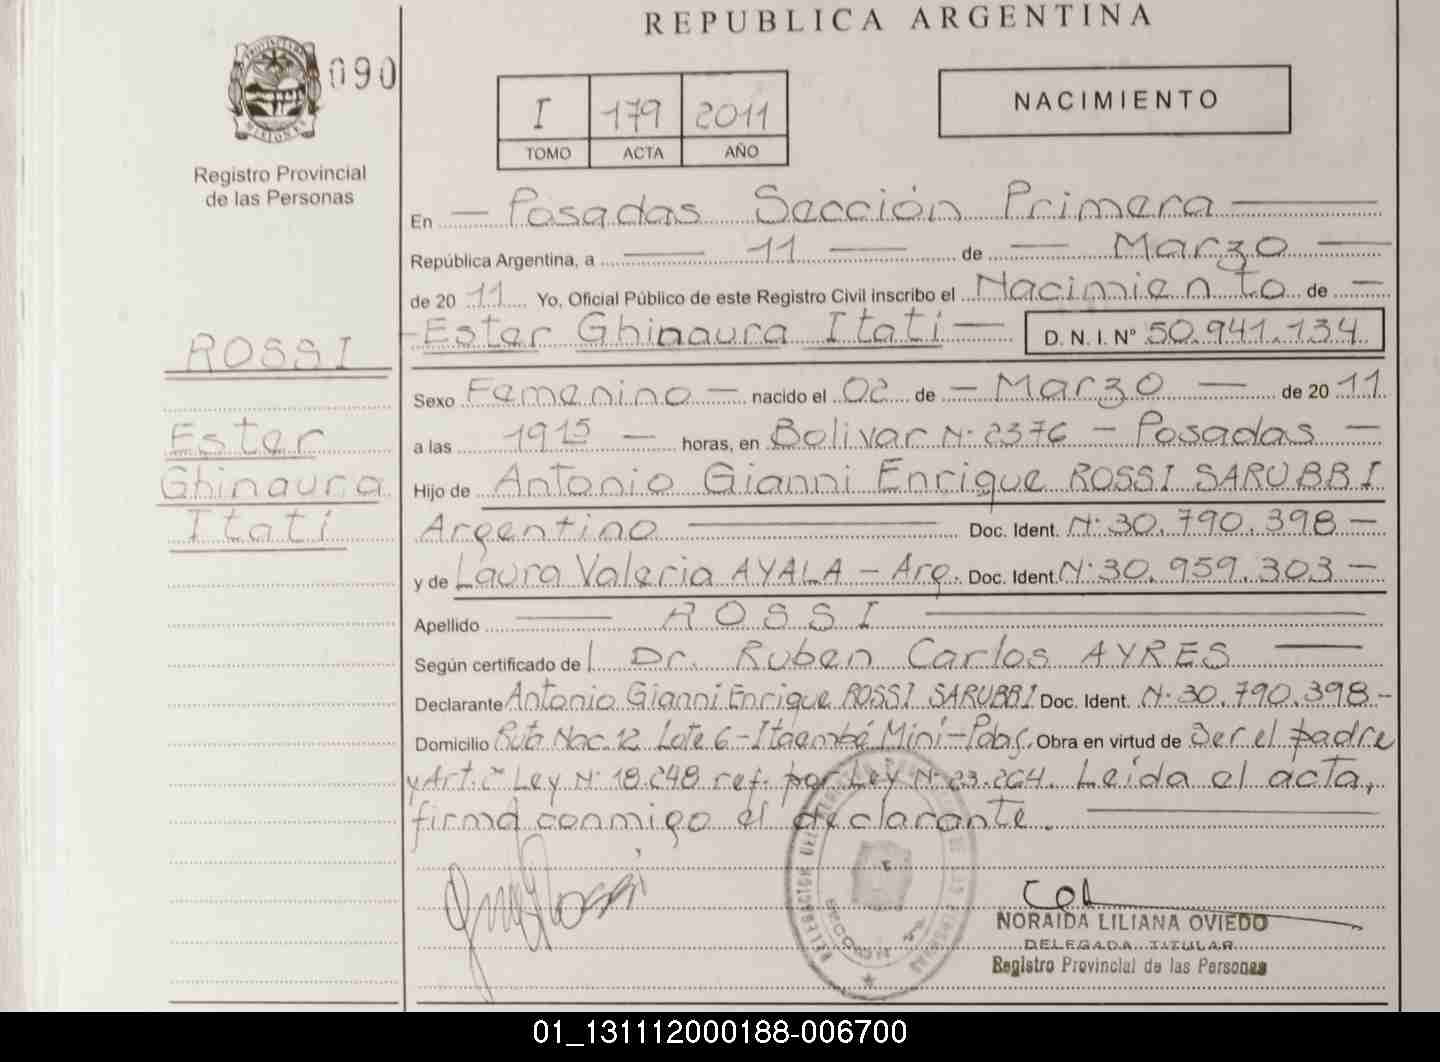 REPUBLICA ARGENTINA
PROVINCIA DE MISIONES
090
Registro Provincial
de las Personas
I 179 2011
TOMO ACTA AÑO
NACIMIENTO
En — Posadas Sección Primera —
República Argentina, a — 11 — de — Marzo —
de 20 11 Yo, Oficial Público de este Registro Civil inscribo el Nacimiento de —
— Ester Ghinaura Itatí — D. N. I. Nº 50.941.134
ROSSI
Ester
Ghinaura
Itatí
Sexo Femenino — nacido el 02 de — Marzo — de 20 11
a las 19 15 — horas, en Bolivar Nº 2376 – Posadas —
Hijo de Antonio Gianni Enrique ROSSI SARUBBI
Argentino — Doc. Ident. Nº 30.790.398 —
y de Laura Valeria AYALA – Arg. Doc. Ident. Nº 30.959.303 —
Apellido — ROSSI —
Según certificado de Dr. Ruben Carlos AYRES —
Declarante Antonio Gianni Enrique ROSSI SARUBBI Doc. Ident. Nº 30.790.398 –
Domicilio Ruta Nac. 12 Lote 6 – Itaembé Miní – Pdas. Obra en virtud de Ser el padre
y Art. 2º Ley Nº 18.248 ref. por Ley Nº 23.264. Leída el acta,
firma conmigo el declarante. —
NORAIDA LILIANA OVIEDO
DELEGADA TITULAR
Registro Provincial de las Personas
01_131112000188-006700